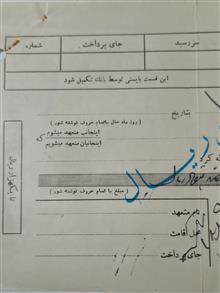 سررسید جای پرداخت شماره
این قسمت بایستی توسط بانک تکمیل شود
بتاریخ
( روز ماه حال با تمام حروف نوشته شود )
اینجانب متعهد میشوم
اینجانبان متعهد میشویم
ریال
( مبلغ با تمام حروف نوشته شود )
نام متعهد
محل اقامت
جای پرداخت
تا یکهزار ریال